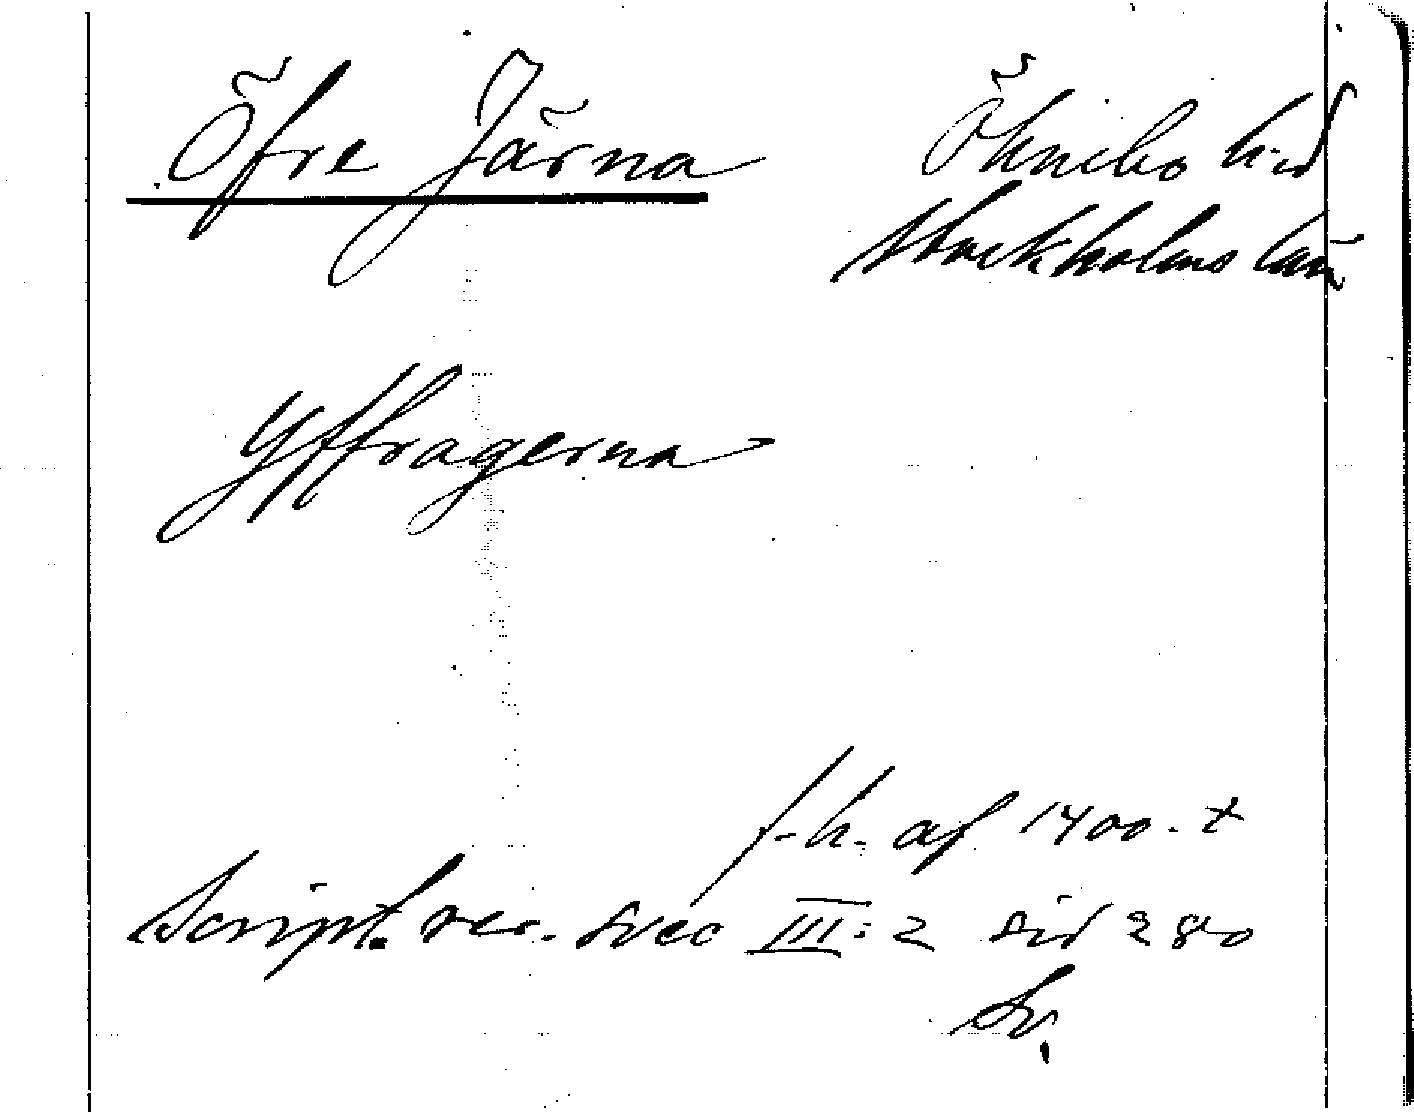 Öfre Järna Öknebo h-d
Stockholms län
Yffragerna
f.h. af 1400-t
Script. rer. svec III:2 sid 280
Sv.